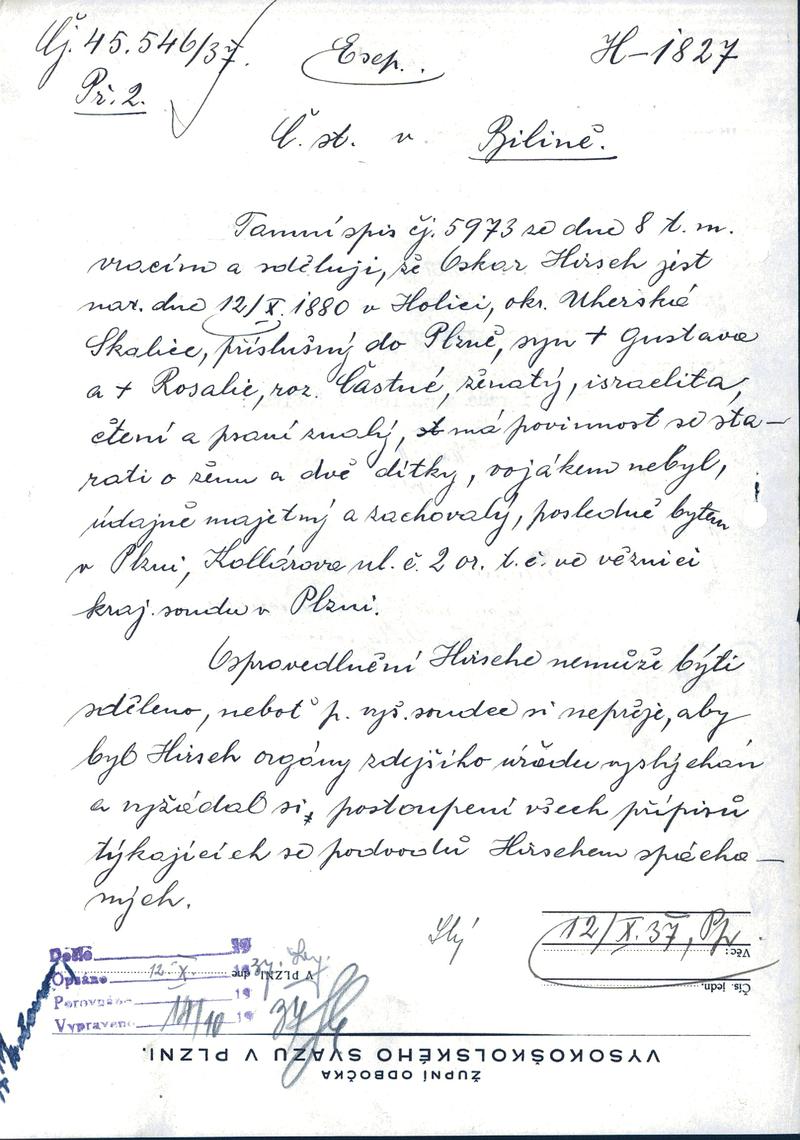 Čj. 45.546/37.
Esep.
H-1827
Př. 2.
Č. st. v Bílině.
Tamní spis čj. 5973 ze dne 8 t. m.
vracím a sděluji, že Oskar Hirsch jest
nar. dne 12/X. 1880 v Holici, okr. Uherská
Skalice, příslušný do Plzně, syn + Gustava
a + Rosalie, roz. Častné, ženatý, israelita,
čtení a psaní znalý, má povinnost se sta-
rati o ženu a dvě dítky, vojákem nebyl,
údajně majetný a zachovalý, posledně bytem
v Plzni, Kollárova ul. č. 2 or. t. č. ve věznici
kraj. soudu v Plzni.
Ospravedlnění Hirsche nemůže býti
sděleno, neboť p. vyš. soudce si nepřeje, aby
byl Hirsch orgány zdejšího úřadu vyslýchán
a vyžádal si postoupení všech přípisů
týkajících se podvodů Hirschem spácha-
ných.
12/X. 37, Pp.
Věc:
Čís. jedn.
Došlo 19
Opsáno 12. X. 1937
Porovnáno 19
Vypraveno 14/10 19 37
V PLZNI dne
ŽUPNÍ ODBOČKA
VYSOKOŠKOLSKÉHO SVAZU V PLZNI.